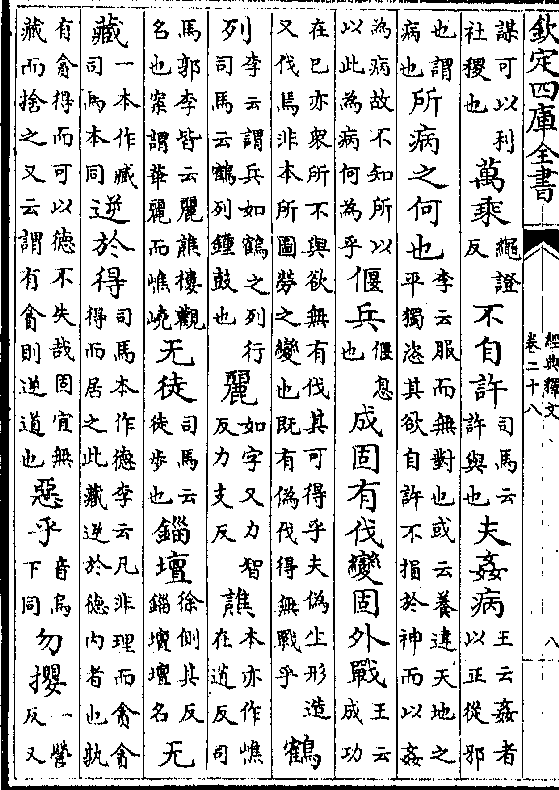 欽定四庫全書
經典釋文
卷二十八
八
謀可以利社稷也萬乘繩證反不自許司馬云許與也夫姦病王云姦者以正從邪
也謂病也所病之何也李云服而無對也或云養違天地之平獨恣其欲自許不損於神而以姦
為病故不知所以以此為病何為乎偃兵偃息也成固有伐變固外戰王云成功
在已亦衆所不與欲無有伐其可得乎夫偽生形造又伐焉非本所圖勞之變也既有偽伐得無戰乎鶴
列李云謂兵如鶴之列行司馬云鶴列鐘鼓也麗如字又力智反力支反譙本亦作憔在遥反司
馬郭李皆云麗譙樓觀名也案謂華麗而嶕嶢无徒司馬云徒步也錙壇徐側其反錙壇壇名无
藏一本作臧司馬本同逆於得司馬本作德李云凡非理而貪貪得而居之此藏逆於德内者也孰
有貪得而可以德不失哉固宜無藏而捨之又云謂有貪則逆道也惡乎音烏下同勿攖一營反又